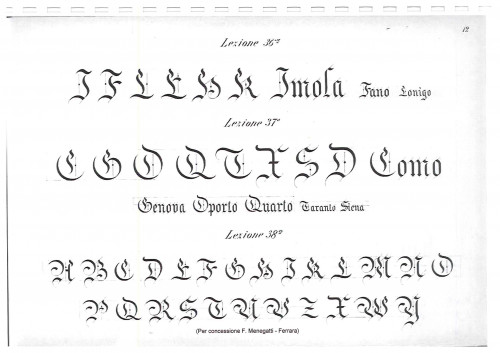 12
Lezione 36ª
I F L E H K Imola Fano Lonigo
Lezione 37ª
C G O Q T X S D Como
Genova Oporto Quarto Taranto Siena
Lezione 38ª
A B C D E F G H I K L M N O
P Q R S T U V Z X W Y
(Per concessione F. Menegatti - Ferrara)